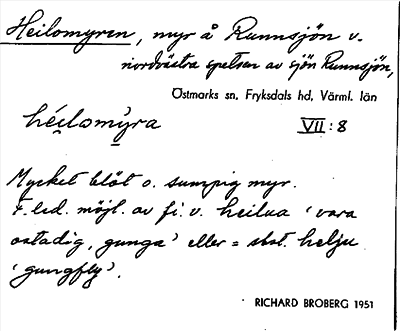 Heilomyren, myr å Runnsjön v.
nordvästra spetsen av sjön Runnsjön,
Östmarks sn, Fryksdals hd, Värml. län
héilomỳra VII : 8
Mycket blöt o. sumpig myr.
F.led. möjl. av fi. v. heilua 'vara
ostadig, gunga' eller = sbst. helju
'gungfly'.
RICHARD BROBERG 1951